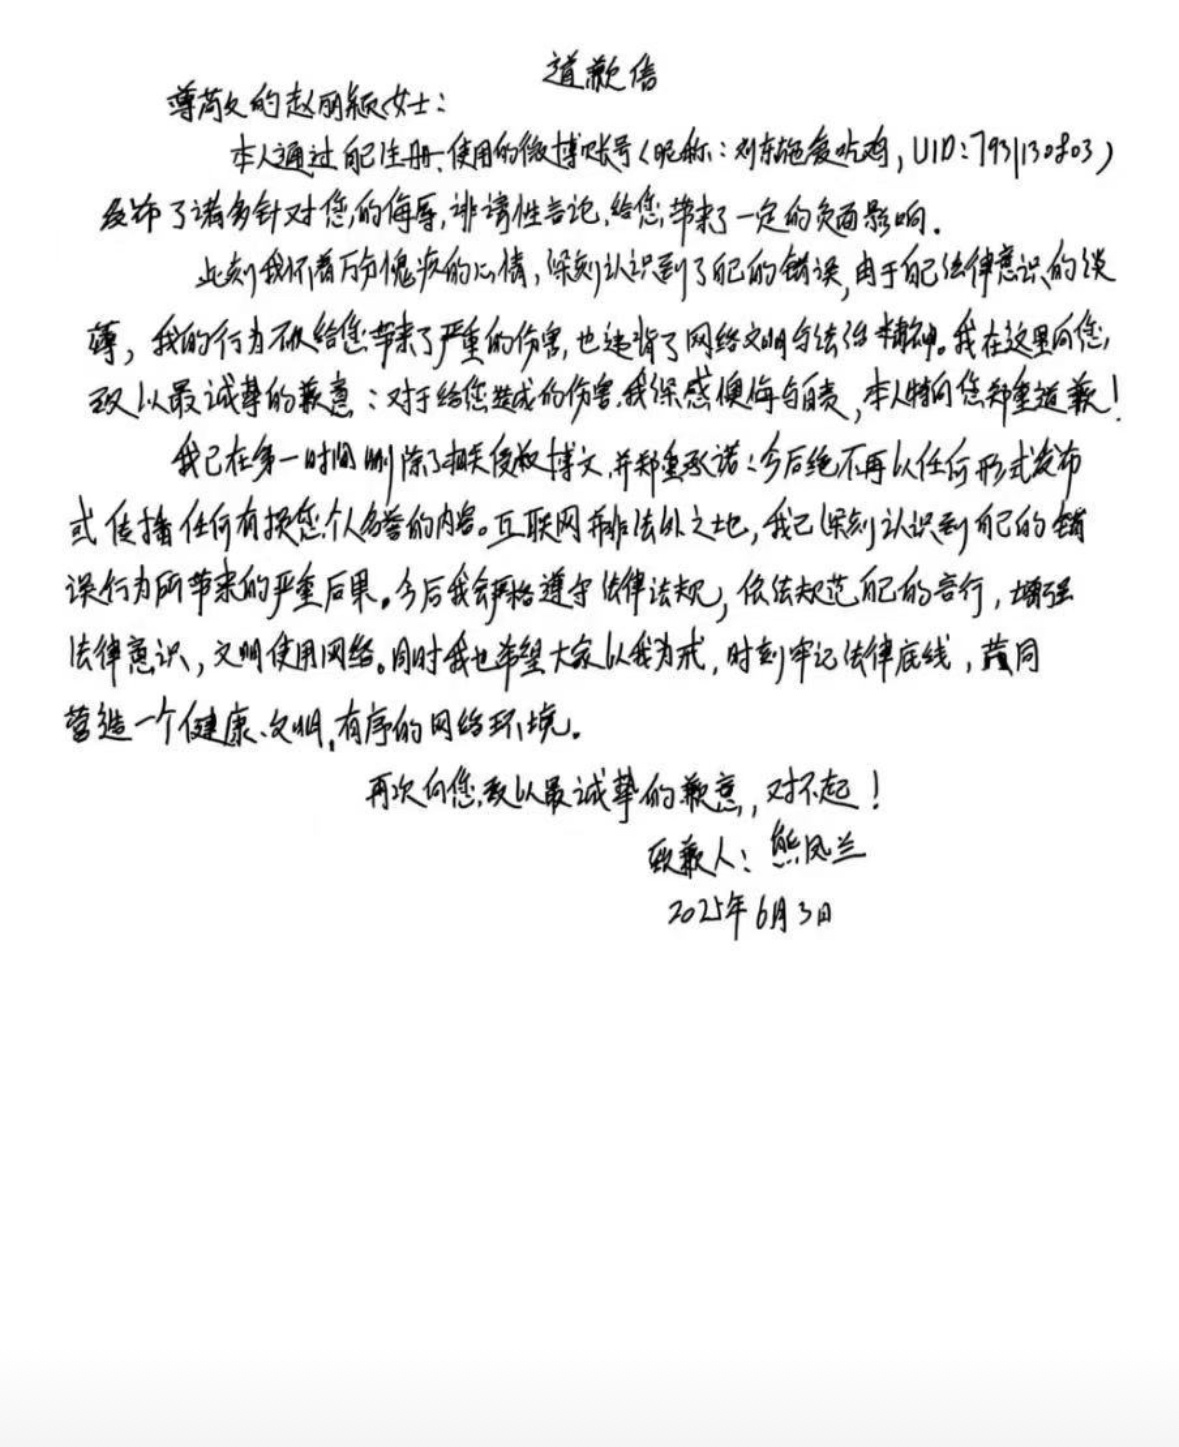 道歉信
尊敬的赵丽颖女士：
本人通过自己注册、使用的微博账号（昵称：刘东施爱吃鸡，UID：7931130803）
发布了诸多针对您的侮辱，诽谤性言论，给您带来了一定的负面影响.
此刻我怀着万分愧疚的心情，深刻认识到了自己的错误，由于自己法律意识的淡
薄，我的行为不仅给您带来了严重的伤害，也违背了网络文明与法治精神。我在这里向您，
致以最诚挚的歉意：对于给您造成的伤害，我深感懊悔与自责，本人特向您郑重道歉！
我已在第一时间删除了相关侵权博文，并郑重承诺：今后绝不再以任何形式发布
或传播任何有损您个人名誉的内容。互联网并非法外之地，我已深刻认识到自己的错
误行为所带来的严重后果。今后我会严格遵守法律法规，依法规范自己的言行，增强
法律意识，文明使用网络。同时我也希望大家以我为戒，时刻牢记法律底线，共同
营造一个健康、文明，有序的网络环境。
再次向您致以最诚挚的歉意，对不起！
致歉人：熊凤兰
2025年6月3日